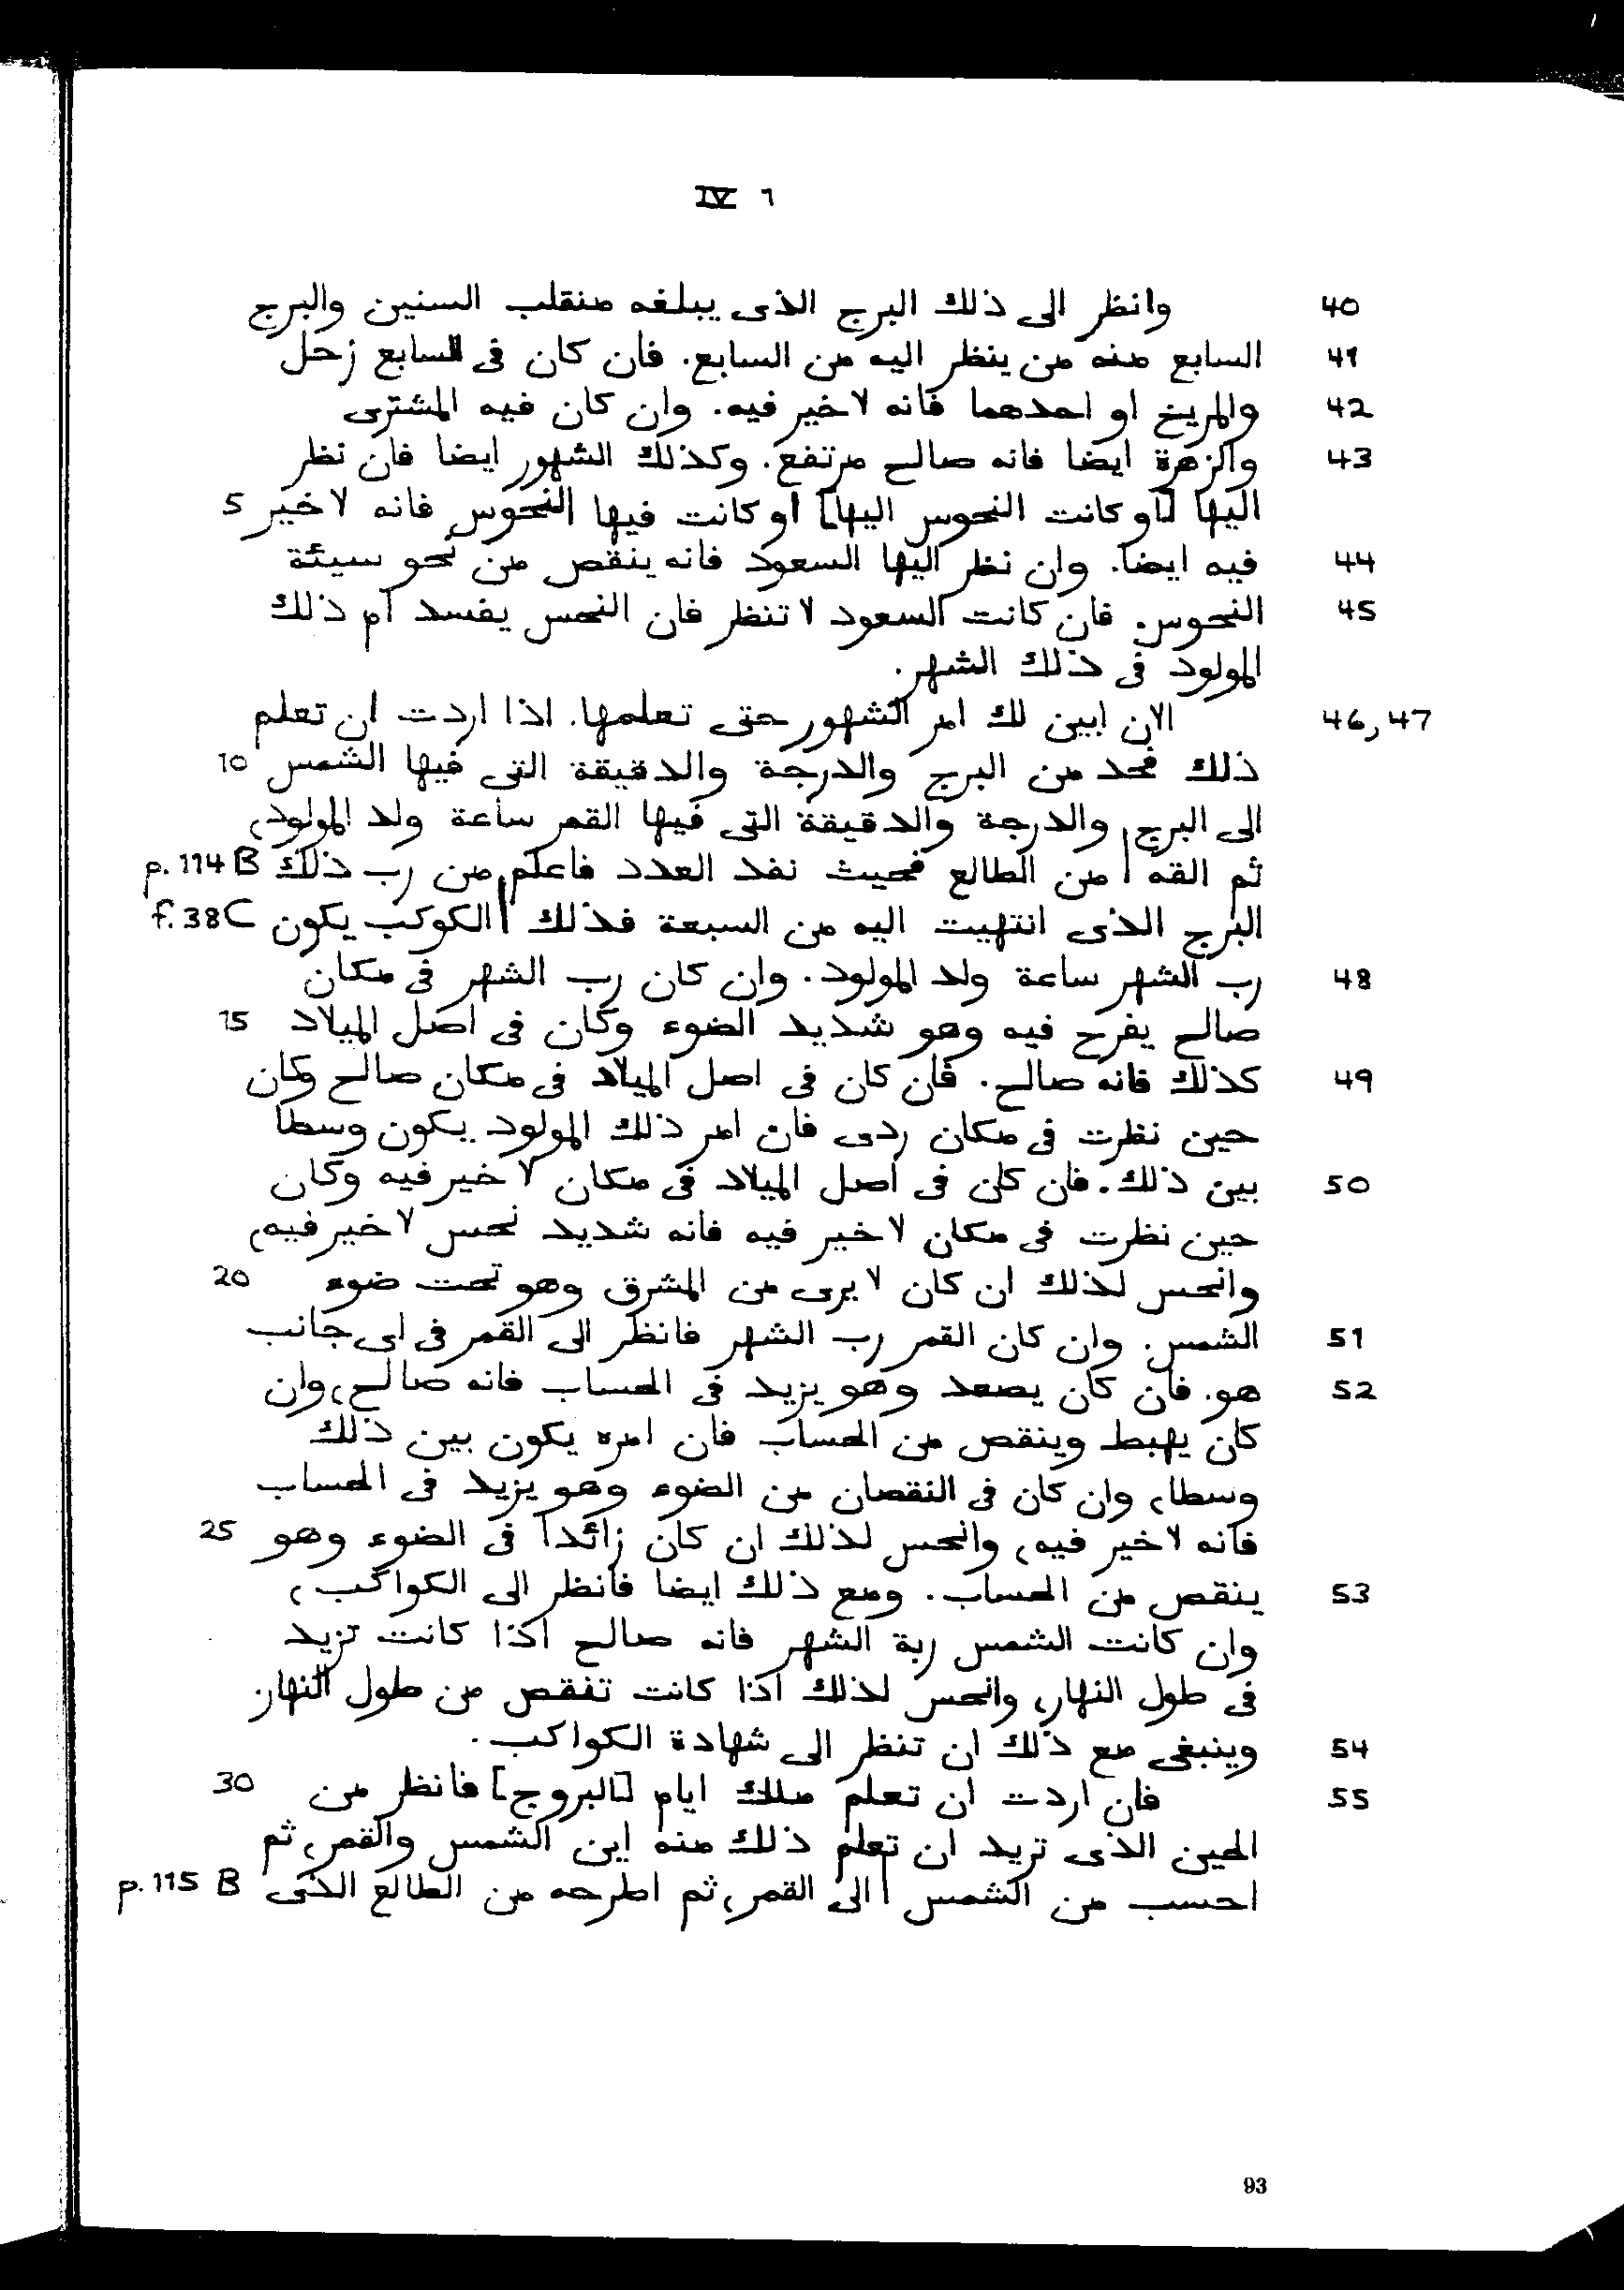 IV ٦
40 وانظر الى ذلك البرج الذى يبلغه منقلب السنين والبرج
41 السابع منه من ينظر اليه من السابع. فان كان فى السابع زحل
42 والمريخ او احدهما فانه لا خير فيه. وان كان فيه المشترى
43 والزهرة ايضا فانه صالح مرتفع. وكذلك الشهور ايضا فان نظر
اليها [او كانت النحوس اليها] او كانت فيها النحوس فانه لا خير 5
44 فيه ايضا. وان نظر اليها السعود فانه ينقص من نحو سيئة
45 النحوس. فان كانت السعود لا تنظر فان النحس يفسد ام ذلك
المولود فى ذلك الشهر.
46,47 الان ابين لك امر الشهور حتى تعلمها. اذا اردت ان تعلم
ذلك فخد من البرج والدرجة والدقيقة التى فيها الشمس 10
الى البرج والدرجة والدقيقة التى فيها القمر ساعة ولد المولود،
ثم القه | من الطالع فحيث نفد العدد فاعلم من رب ذلك p. 114 B
البرج الذى انتهيت اليه من السبعة فذلك | الكوكب يكون f. 38 C
48 رب الشهر ساعة ولد المولود. وان كان رب الشهر فى مكان
صالح يفرح فيه وهو شديد الضوء وكان فى اصل الميلاد 15
49 كذلك فانه صالح. فان كان فى اصل الميلاد فى مكان صالح وكان
حين نظرت فى مكان ردى فان امر ذلك المولود يكون وسطا
50 بين ذلك. فان كان فى اصل الميلاد فى مكان لا خير فيه وكان
حين نظرت فى مكان لا خير فيه فانه شديد نحس لا خير فيه،
وانحس لذلك ان كان لا يرى من المشرق وهو تحت ضوء 20
51 الشمس. وان كان القمر رب الشهر فانظر الى القمر فى اى جانب
52 هو. فان كان يصعد وهو يزيد فى الحساب فانه صالح، وان
كان يهبط وينقص من الحساب فان امره يكون بين ذلك
وسطا، وان كان فى النقصان من الضوء وهو يزيد فى الحساب
فانه لا خير فيه، وانحس لذلك ان كان زائدا فى الضوء وهو 25
53 ينقص من الحساب. ومع ذلك ايضا فانظر الى الكواكب،
وان كانت الشمس ربة الشهر فانه صالح اذا كانت تزيد
فى طول النهار، وانحس لذلك اذا كانت تنقص من طول النهار
54 وينبغى مع ذلك ان تنظر الى شهادة الكواكب.
55 فان اردت ان تعلم ملك ايام [البروج] فانظر من 30
الحين الذى تريد ان تعلم ذلك منه اين الشمس والقمر، ثم
احسب من الشمس | الى القمر، ثم اطرحه من الطالع الذى p. 115 B
93